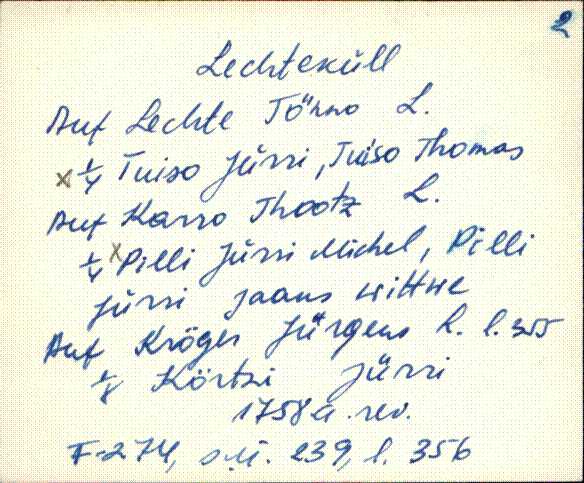 2
Lechteküll
Auf Lechte Tönno L.
x 1/4 Tuiso Jürri, Tuiso Thomas
Auf Karro Thootz L.
1/4 x Pilli Jürri Michel, Pilli
Jürri Jaans wittwe
Auf Kröger Jürgens L. l. 355
1/8 Körtzi Jürri
1758 a. rev.
F-274, s.ü. 239, l. 356